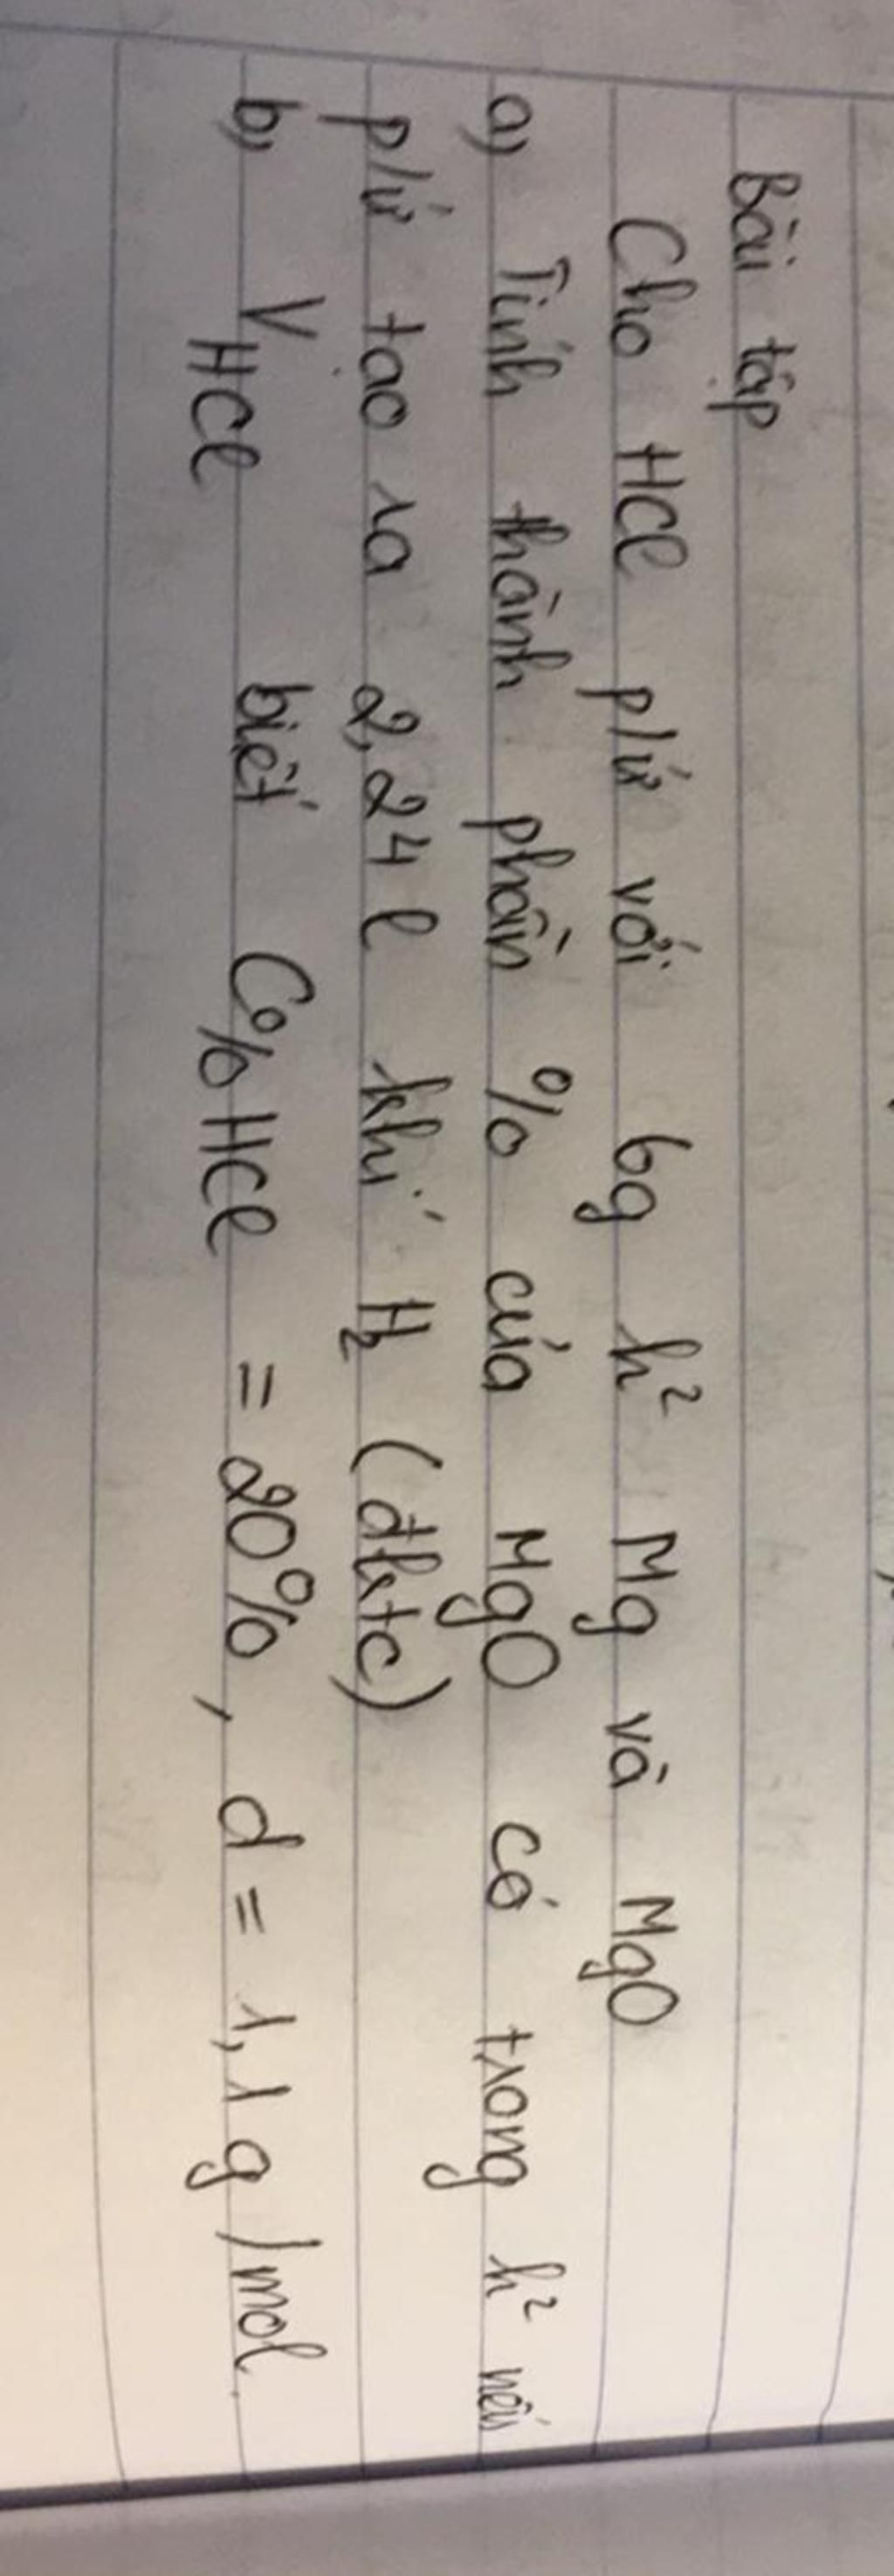 Bài tập
Cho HCl p/ứ với 6g h² Mg và MgO
a) Tính thành phần % của MgO có trong h² nếu
p/ứ tạo ra 2,24 l khí H₂ (đktc)
b) V HCl biết C% HCl = 20%, d = 1,1 g/mol.